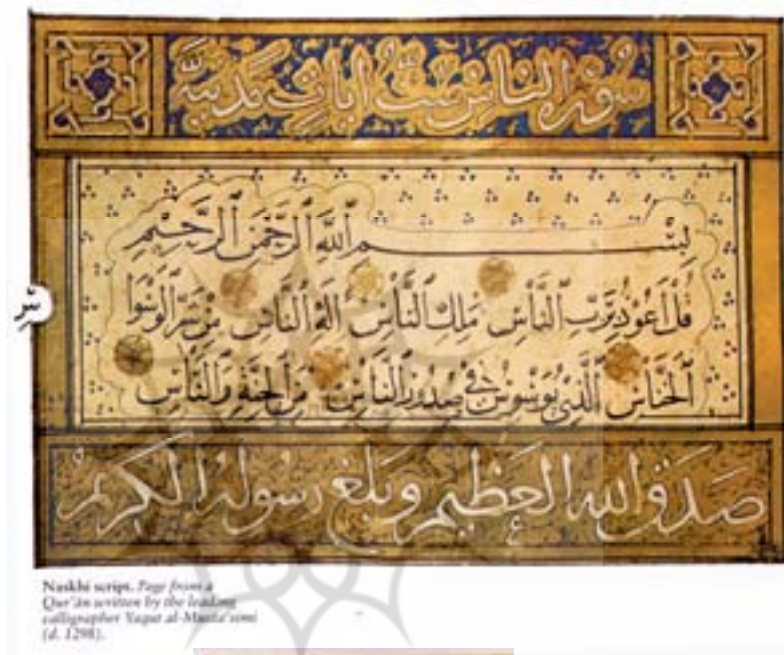 سورة الناس ست ايات مدنية
بِسْمِ اللَّهِ الرَّحْمَنِ الرَّحِيمِ
قُلْ أَعُوذُ بِرَبِّ النَّاسِ مَلِكِ النَّاسِ إِلَهِ النَّاسِ مِنْ شَرِّ الْوَسْوَا
الْخَنَّاسِ الَّذِي يُوَسْوِسُ فِي صُدُورِ النَّاسِ مِنَ الْجِنَّةِ وَالنَّاسِ
صَدَقَ الله العَظِيم وبَلغ رسوله الكَرِيمُ
Naskhi script. Page from a
Qur'ān written by the leading
calligrapher Yaqut al-Musta'simi
(d. 1298).